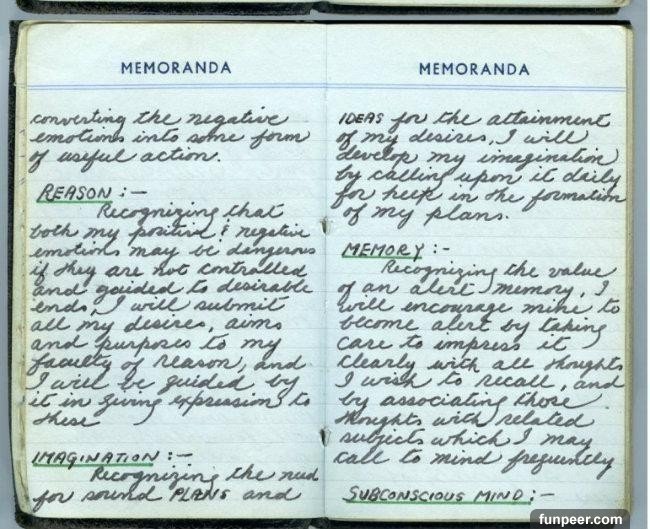 MEMORANDA
converting the negative
emotions into some form
of useful action.
REASON :-
Recognizing that
both my positive & negative
emotions may be dangerous
if they are not controlled
and guided to desirable
ends, I will submit
all my desires, aims
and purposes to my
faculty of reason, and
I will be guided by
it in giving expression to
these
IMAGINATION :-
Recognizing the need
for sound PLANS and
MEMORANDA
IDEAS for the attainment
of my desires, I will
develop my imagination
by calling upon it daily
for help in the formation
of my plans.
MEMORY :-
Recognizing the value
of an alert memory, I
will encourage mine to
become alert by taking
care to impress it
clearly with all thoughts
I wish to recall, and
by associating those
thoughts with related
subjects which I may
call to mind frequently
SUBCONSCIOUS MIND :-
funpeer.com